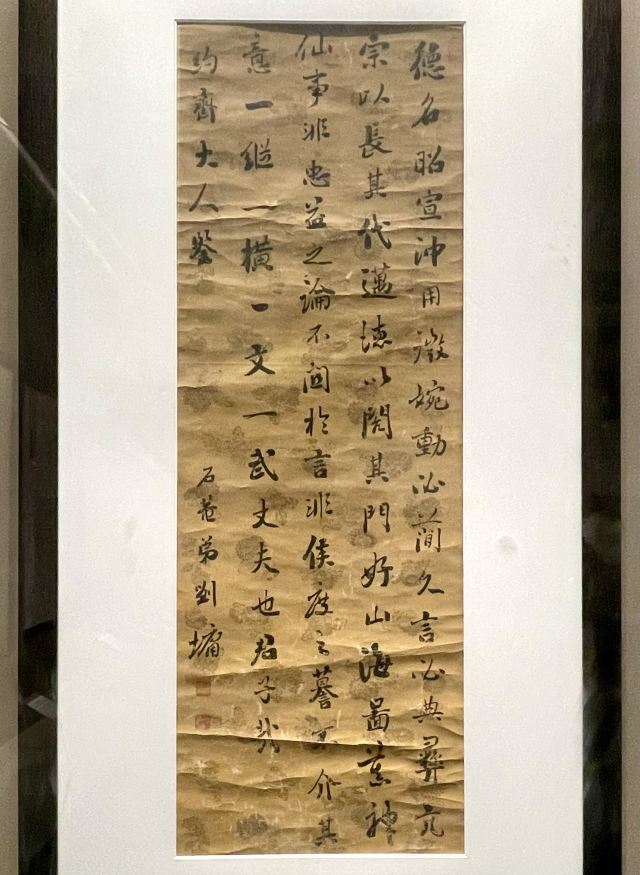 德名昭宣沖用微婉動必簡久言必典彝亢
宗以長其代邁德以閎其門好山海圖慕神
仙事非忠益之論不關於言非侯度之謩不介其
意一縱一橫一文一武丈夫也君子哉
約齋大人鑒
石菴弟劉墉